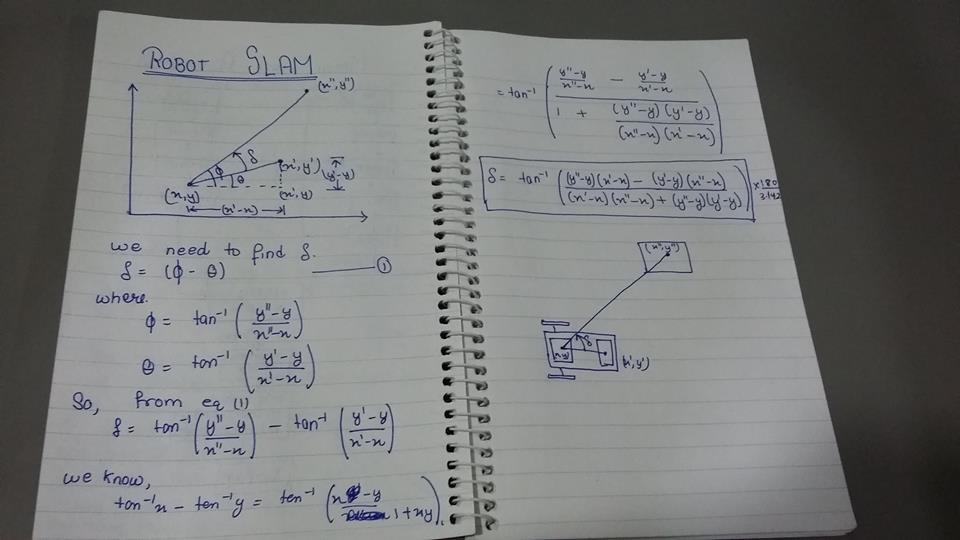 ROBOT SLAM
(x'', y'')
δ
(x', y')
(y'-y)
ϕ
θ
(x, y)
(x', y)
(x'-x)
we need to find δ.
δ = (ϕ - θ) ——— ①
where.
ϕ = tan⁻¹ ( y''-y / x''-x )
θ = tan⁻¹ ( y'-y / x'-x )
So, from eq (1)
δ = tan⁻¹ ( y''-y / x''-x ) - tan⁻¹ ( y'-y / x'-x )
we know,
tan⁻¹x - tan⁻¹y = tan⁻¹ ( x-y / 1+xy ).
= tan⁻¹ ( ( y''-y / x''-x - y'-y / x'-x ) / ( 1 + (y''-y)(y'-y) / (x''-x)(x'-x) ) )
δ = tan⁻¹ ( (y''-y)(x'-x) - (y'-y)(x''-x) / (x'-x)(x''-x) + (y''-y)(y'-y) ) × 180 / 3.142
(x'', y'')
δ
x,y
(x', y')